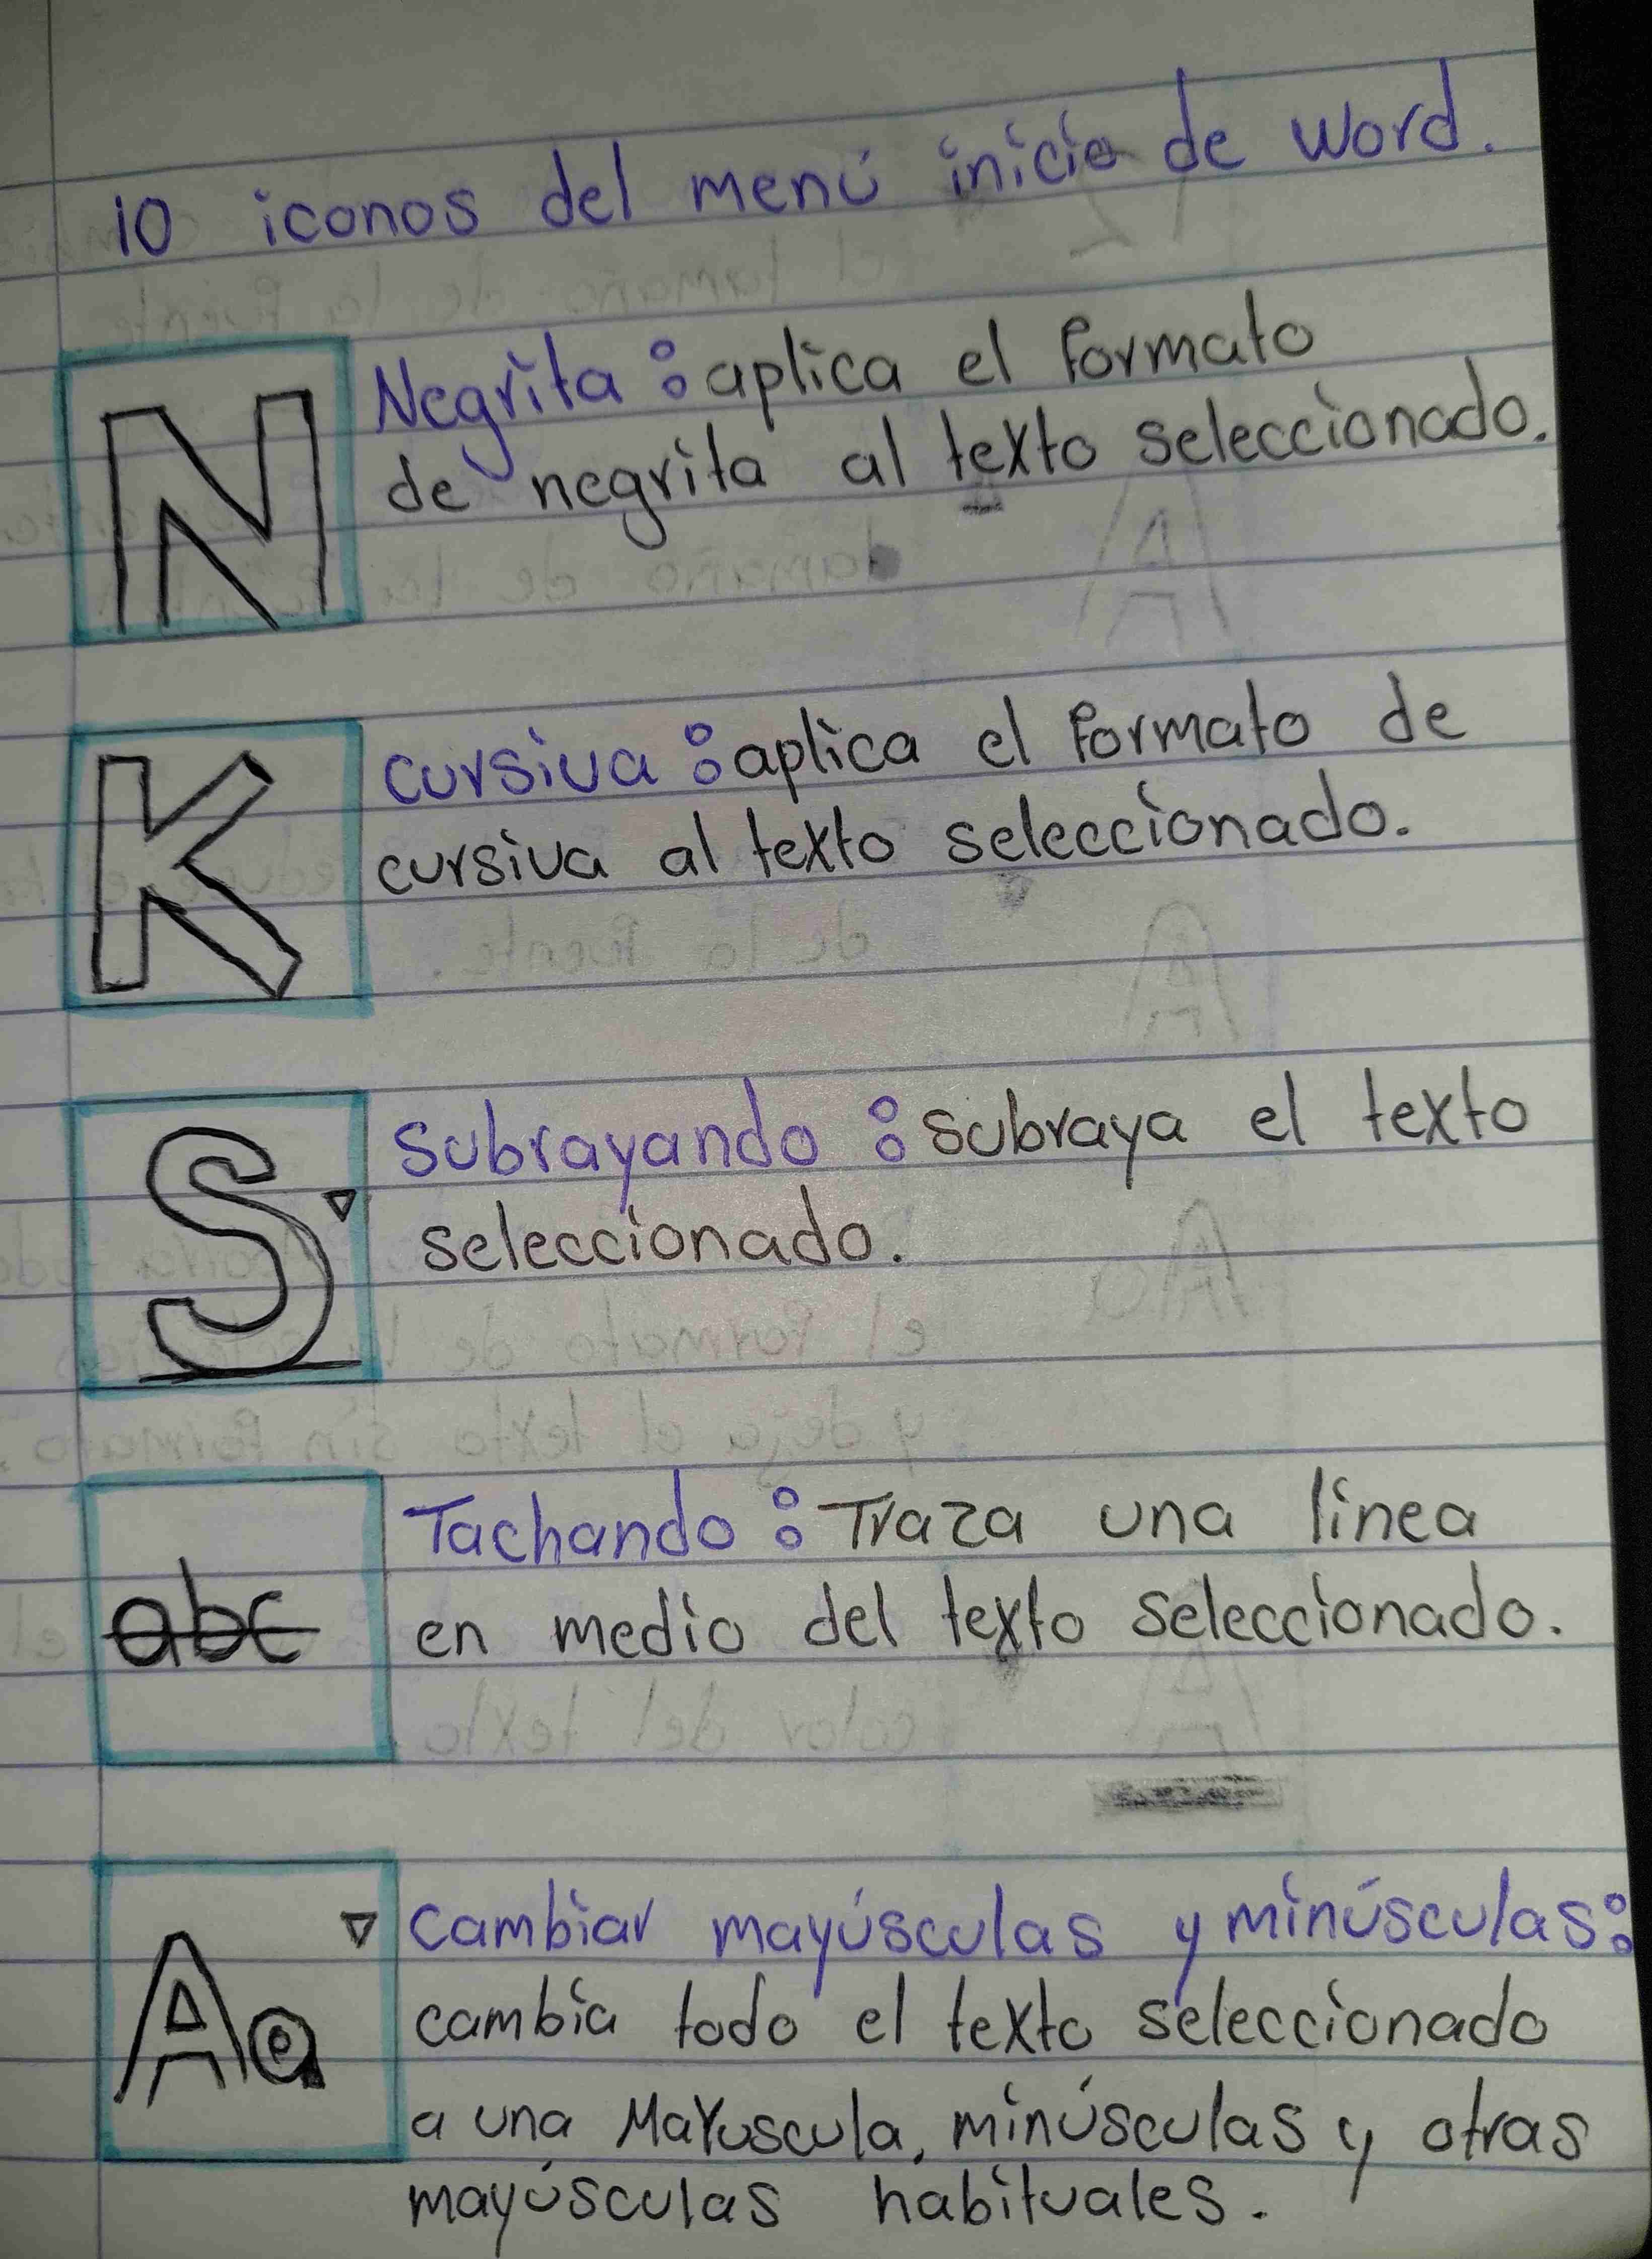 10 iconos del menú inicio de word.
N
Negrita: aplica el formato
de negrita al texto seleccionado.
K
cursiva: aplica el formato de
cursiva al texto seleccionado.
S
Subrayando: subraya el texto
seleccionado.
abc
Tachando: Traza una linea
en medio del texto seleccionado.
Aa
cambiar mayúsculas y minúsculas:
cambia todo el texto seleccionado
a una Mayuscula, minúsculas y otras
mayúsculas habituales.